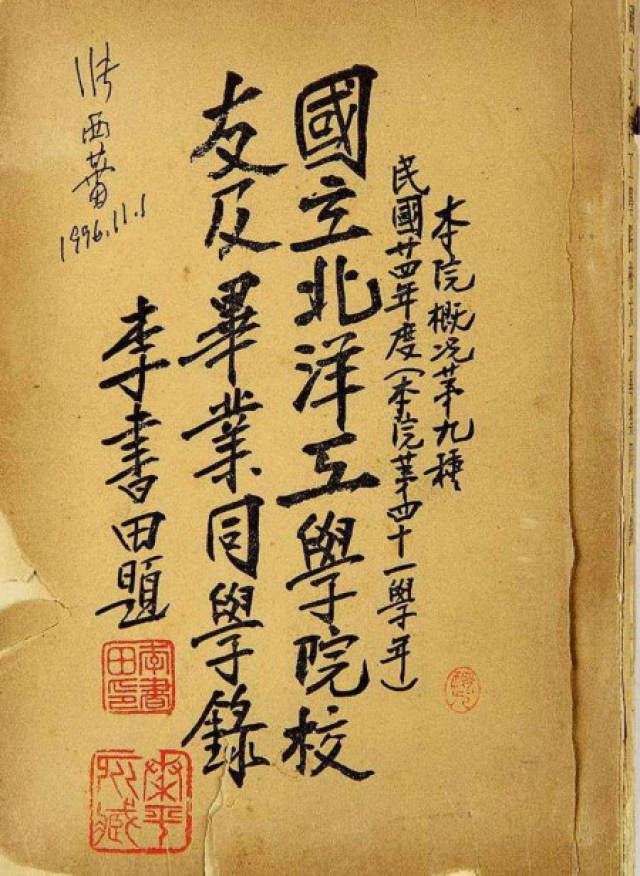 本院概况苐九種
民國廿四年度(本院苐四十一學年)
國立北洋工學院校
友及畢業同學錄
李書田題
李書田印
张西蕃
1996.11.1